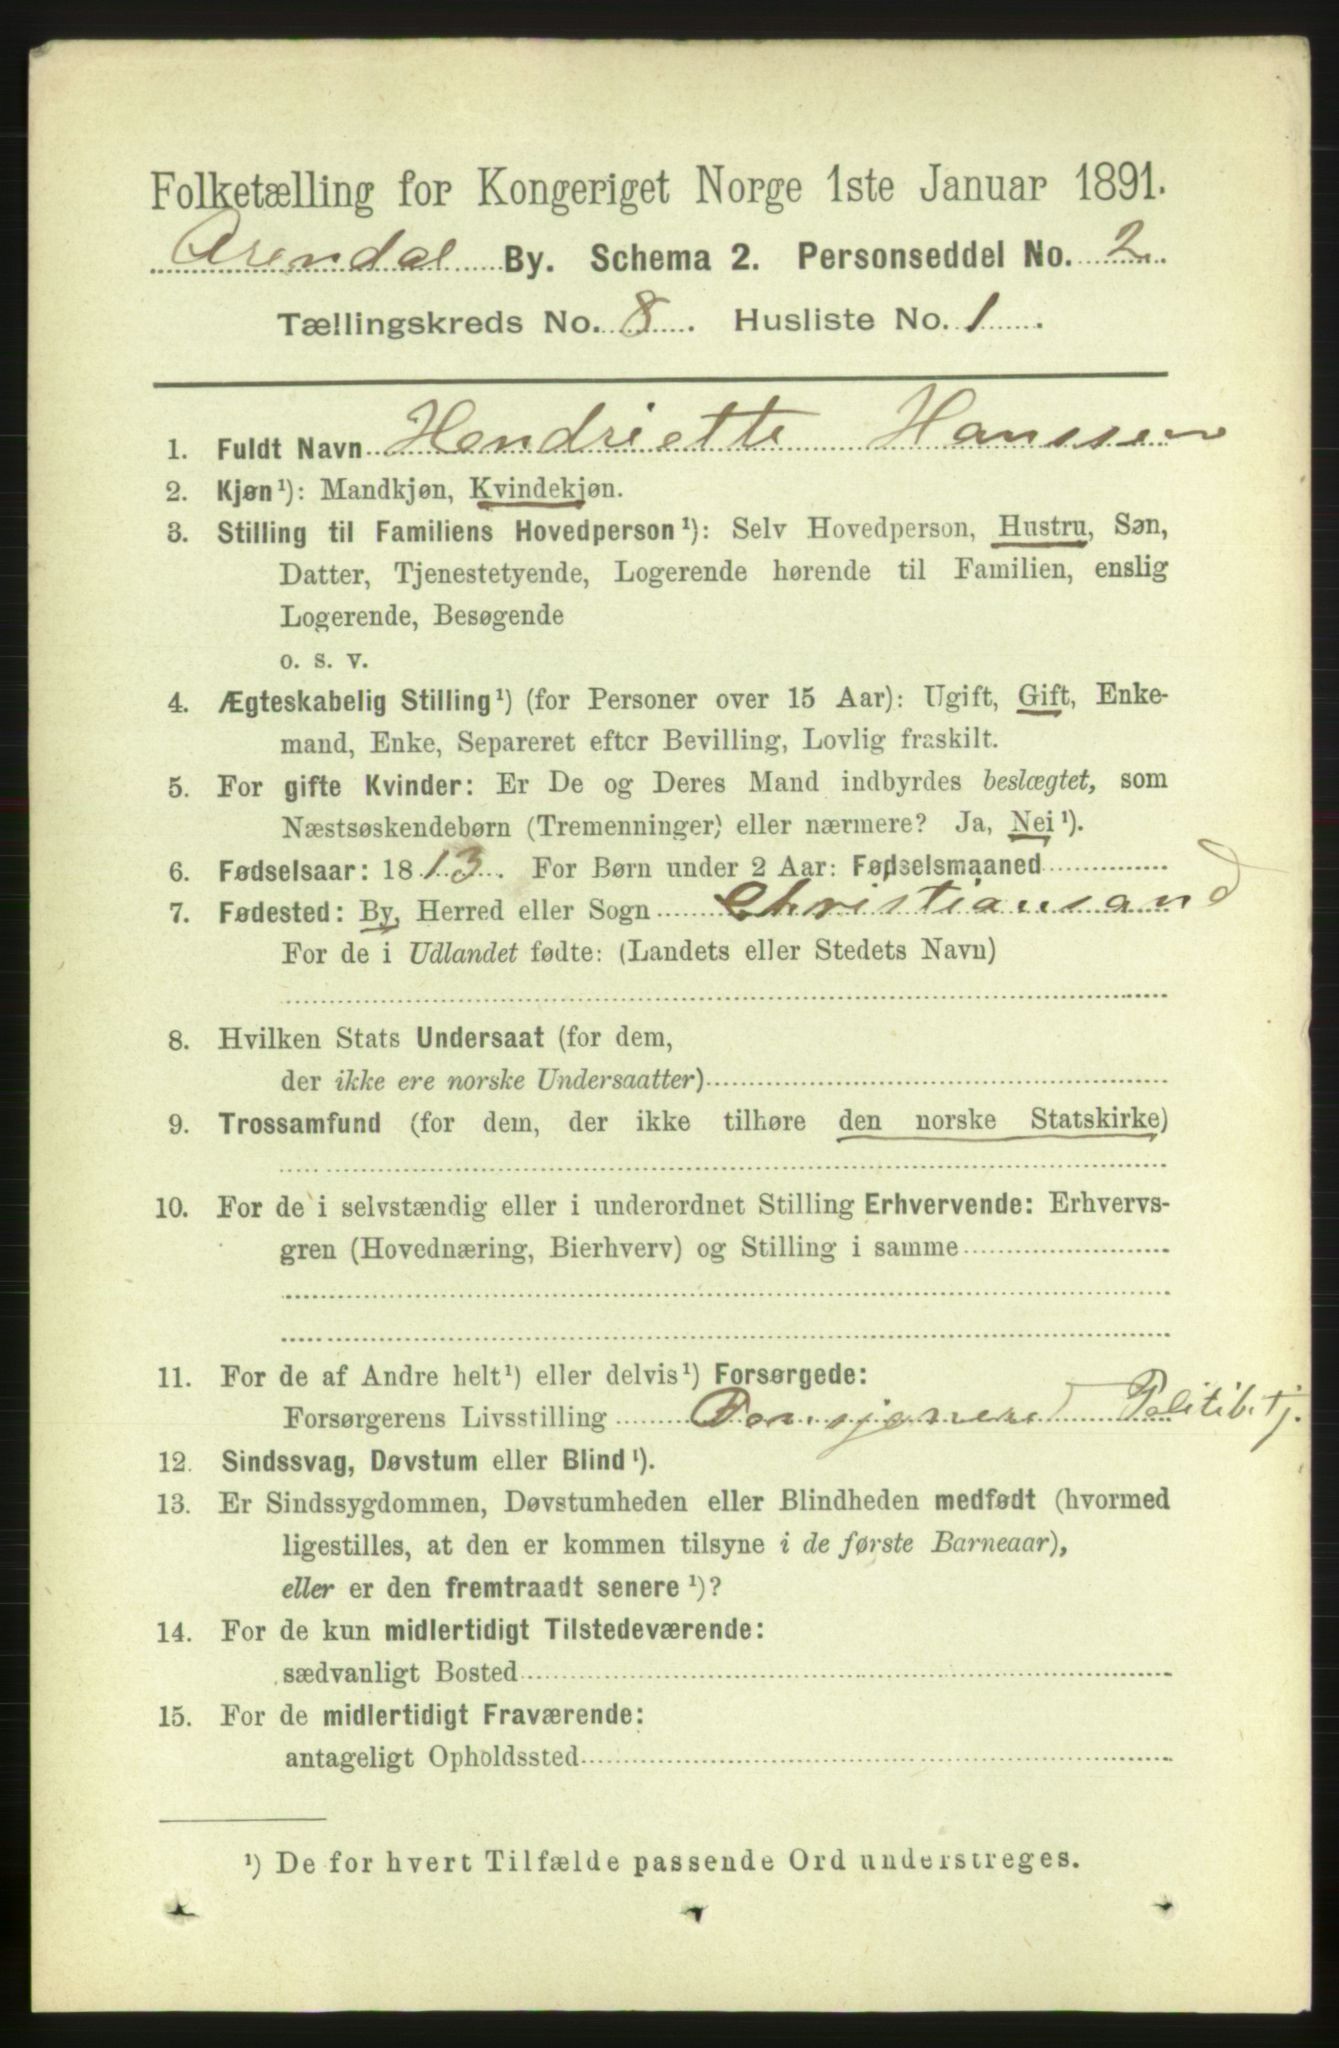 Folketælling for Kongeriget Norge 1ste Januar 1891.
Arendal By. Schema 2. Personseddel No. 2
Tællingskreds No. 8. Husliste No. 1.
1. Fuldt Navn Hendriette Hanssen
2. Kjøn¹): Mandkjøn, Kvindekjøn.
3. Stilling til Familiens Hovedperson¹): Selv Hovedperson, Hustru, Søn,
Datter, Tjenestetyende, Logerende hørende til Familien, enslig
Logerende, Besøgende
o. s. v.
4. Ægteskabelig Stilling¹) (for Personer over 15 Aar): Ugift, Gift, Enke-
mand, Enke, Separeret efter Bevilling, Lovlig fraskilt.
5. For gifte Kvinder: Er De og Deres Mand indbyrdes beslægtet, som
Næstsøskendebørn (Tremenninger) eller nærmere? Ja, Nei¹).
6. Fødselsaar: 1813. For Børn under 2 Aar: Fødselsmaaned
7. Fødested: By, Herred eller Sogn Christiansand
For de i Udlandet fødte: (Landets eller Stedets Navn)
8. Hvilken Stats Undersaat (for dem,
der ikke ere norske Undersaatter)
9. Trossamfund (for dem, der ikke tilhøre den norske Statskirke)
10. For de i selvstændig eller i underordnet Stilling Erhvervende: Erhvervs-
gren (Hovednæring, Bierhverv) og Stilling i samme
11. For de af Andre helt¹) eller delvis¹) Forsørgede:
Forsørgerens Livsstilling Pensjonered Politibetj.
12. Sindssvag, Døvstum eller Blind¹).
13. Er Sindssygdommen, Døvstumheden eller Blindheden medfødt (hvormed
ligestilles, at den er kommen tilsyne i de første Barneaar),
eller er den fremtraadt senere¹)?
14. For de kun midlertidigt Tilstedeværende:
sædvanligt Bosted
15. For de midlertidigt Fraværende:
antageligt Opholdssted
¹) De for hvert Tilfælde passende Ord understreges.